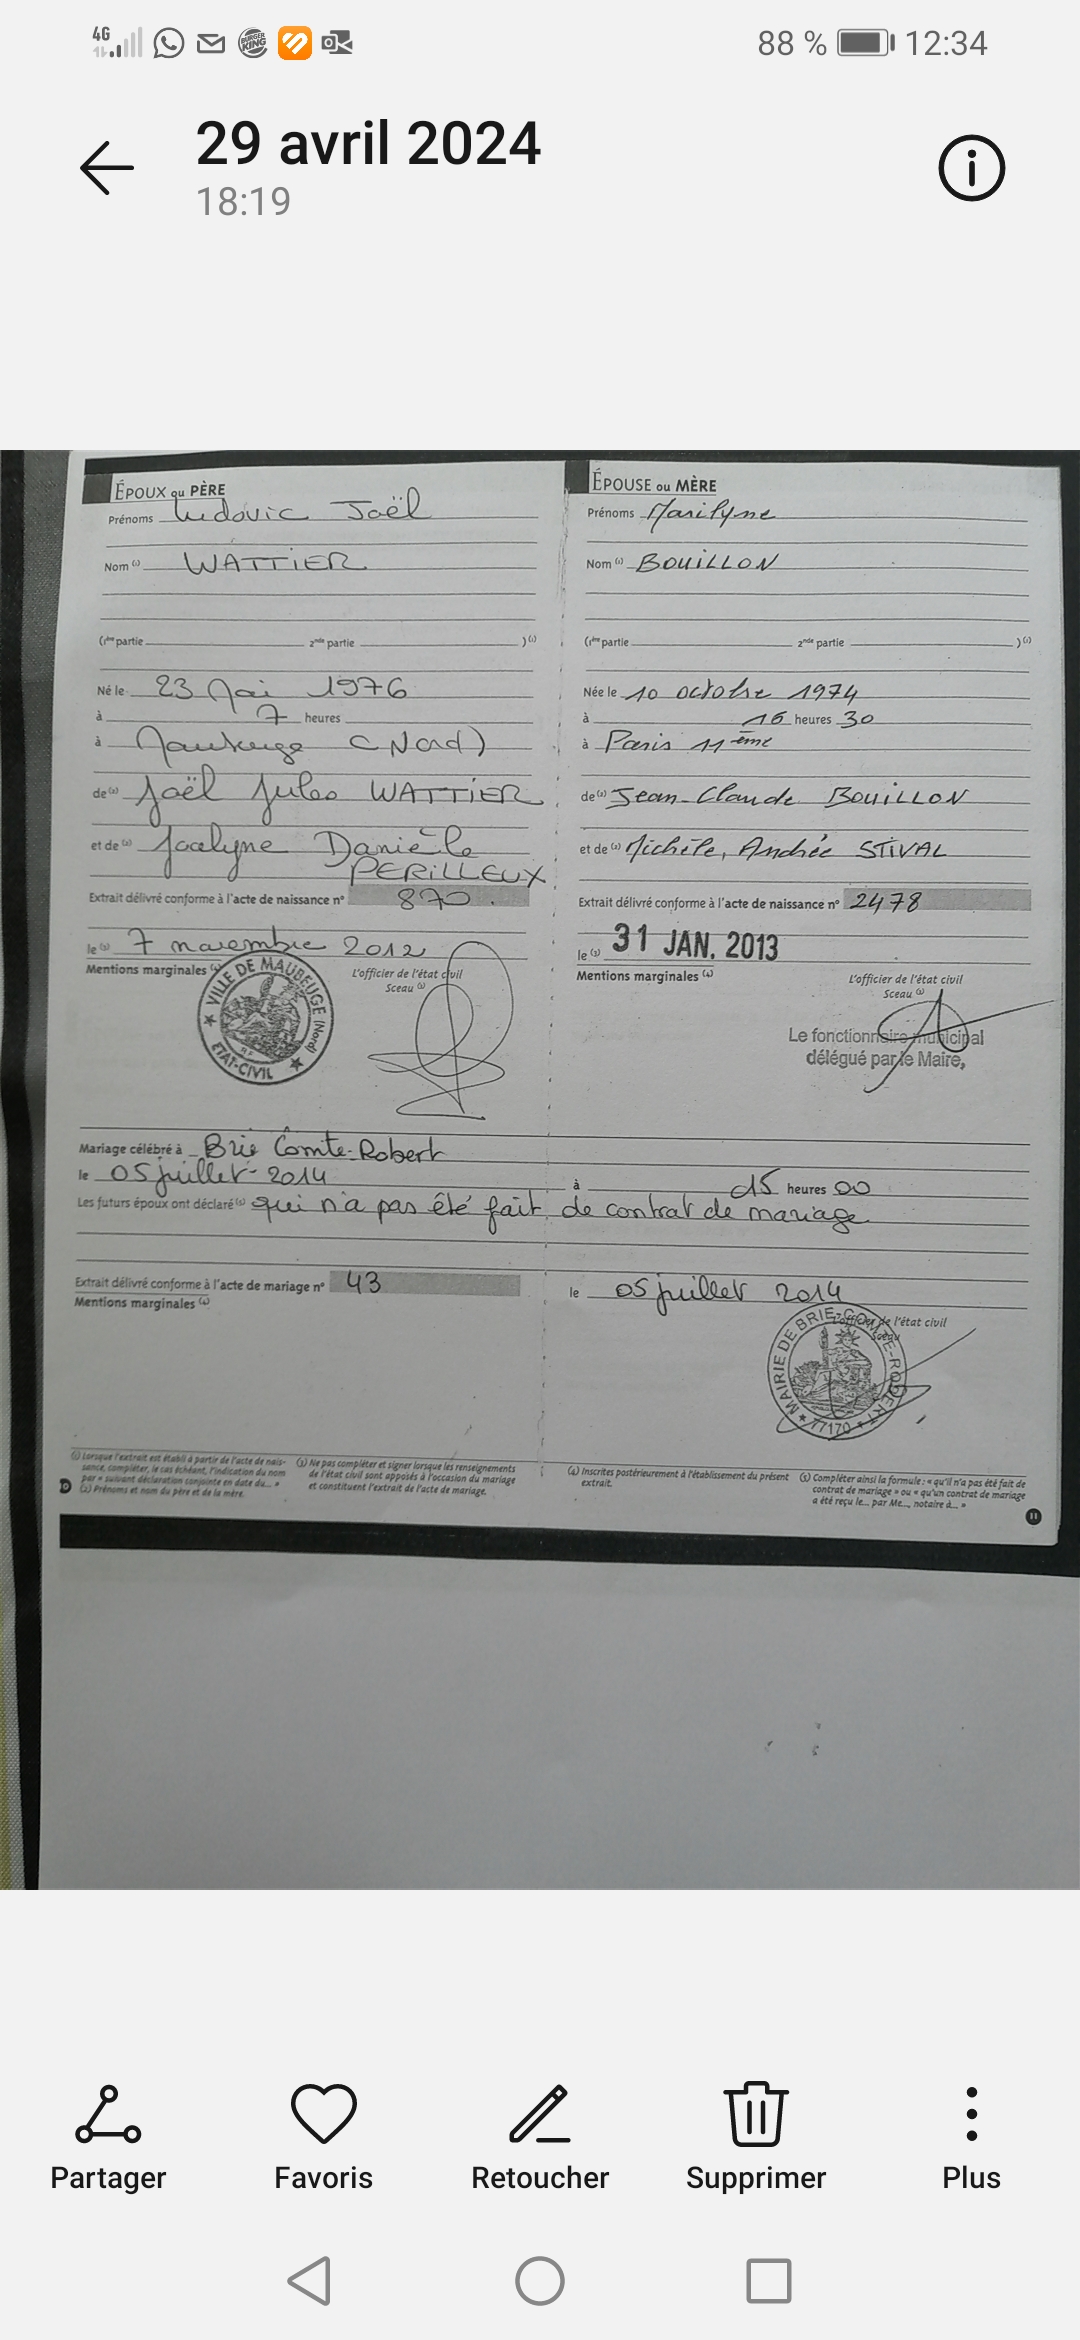 4G
BURGER KING
88 % 12:34
29 avril 2024
18:19
ÉPOUX ou PÈRE
Prénoms Ludovic Joël
Nom (1) WATTIER
(1ère partie 2nde partie )(1)
Né le 23 Mai 1976
à 7 heures
à Maubeuge (Nord)
de (2) Joël Jules WATTIER
et de (2) Jocelyne Danièle
PERILLEUX
Extrait délivré conforme à l'acte de naissance n° 870
le (3) 7 novembre 2012
Mentions marginales (4)
L'officier de l'état civil
Sceau (3)
VILLE DE MAUBEUGE (Nord)
ETAT-CIVIL
ÉPOUSE ou MÈRE
Prénoms Marilyne
Nom (1) BOUILLON
(1ère partie 2nde partie )(1)
Née le 10 octobre 1974
à 16 heures 30
à Paris 11ème
de (2) Jean-Claude BOUILLON
et de (2) Michèle, Andrée STIVAL
Extrait délivré conforme à l'acte de naissance n° 2478
le (3) 31 JAN. 2013
Mentions marginales (4)
L'officier de l'état civil
Sceau (3)
Le fonctionnaire municipal
délégué par le Maire,
Mariage célébré à Brie Comte-Robert
le 05 juillet 2014 à 15 heures 00
Les futurs époux ont déclaré (5) qui n'a pas été fait de contrat de mariage
Extrait délivré conforme à l'acte de mariage n° 43 le 05 juillet 2014
Mentions marginales (4)
L'officier de l'état civil
Sceau
MAIRIE DE BRIE-COMTE-ROBERT
77170
(1) Lorsque l'extrait est établi à partir de l'acte de nais-
sance, compléter, le cas échéant, l'indication du nom
par « suivant déclaration conjointe en date du... »
(2) Prénoms et nom du père et de la mère.
(3) Ne pas compléter et signer lorsque les renseignements
de l'état civil sont apposés à l'occasion du mariage
et constituent l'extrait de l'acte de mariage.
(4) Inscrites postérieurement à l'établissement du présent
extrait.
(5) Compléter ainsi la formule : « qu'il n'a pas été fait de
contrat de mariage » ou « qu'un contrat de mariage
a été reçu le... par Me..., notaire à... »
11
Partager Favoris Retoucher Supprimer Plus